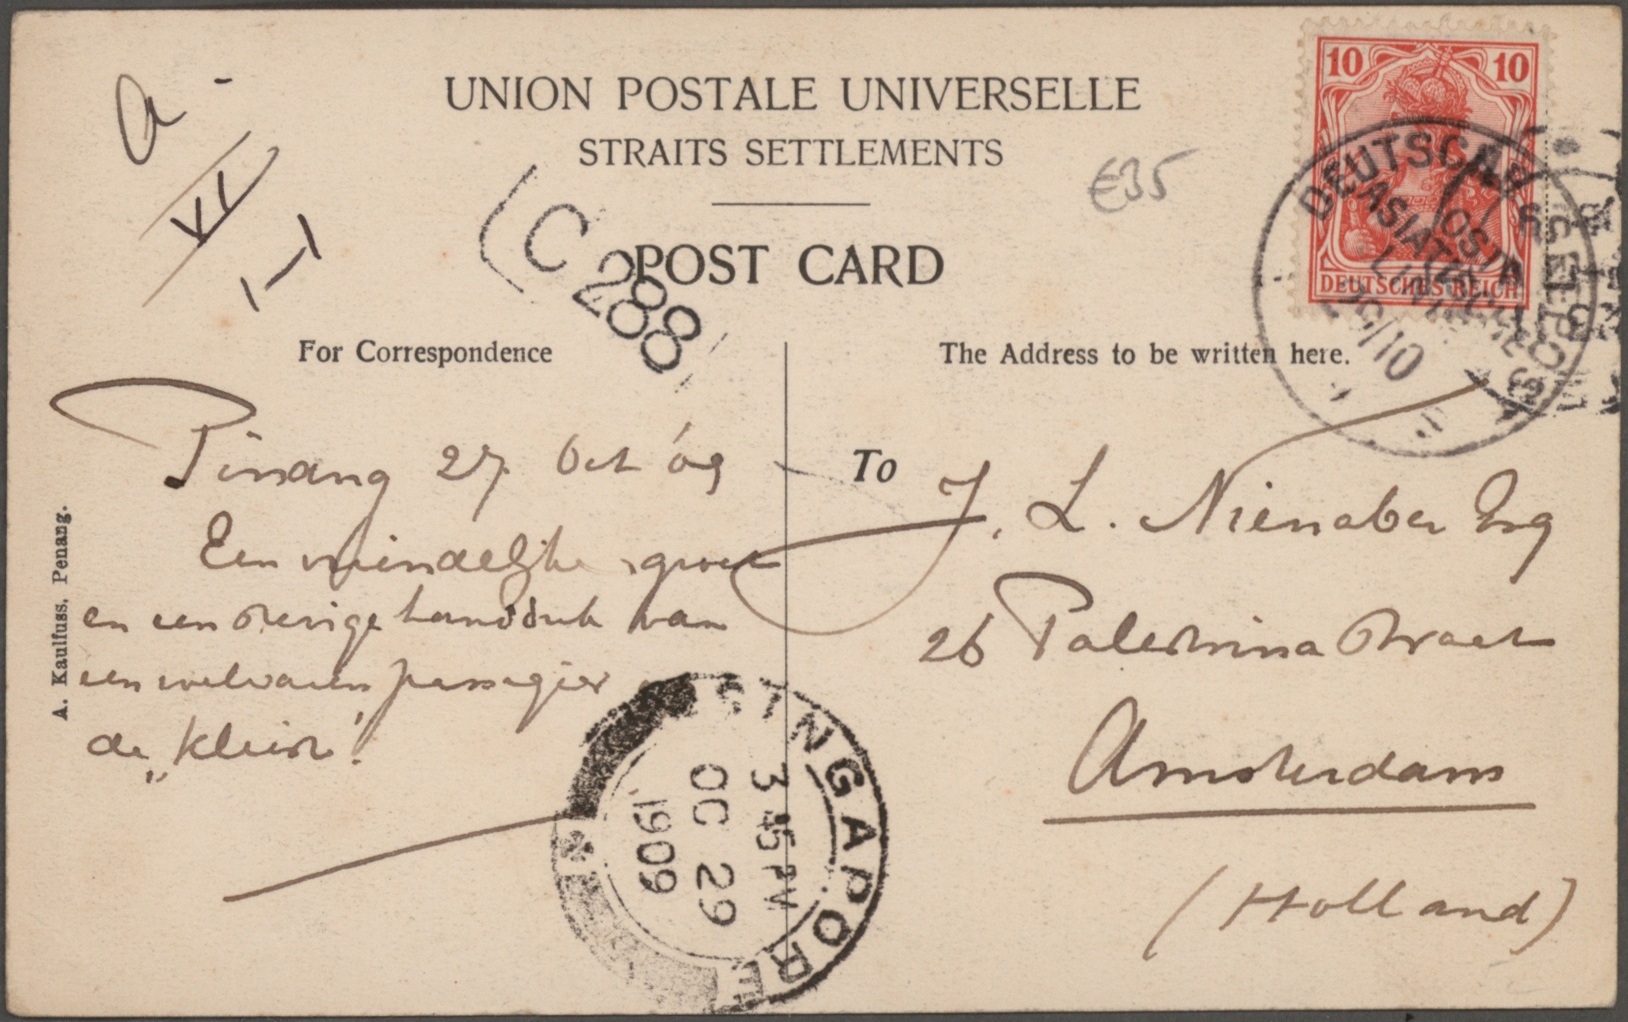 UNION POSTALE UNIVERSELLE
STRAITS SETTLEMENTS
POST CARD
For Correspondence
The Address to be written here.
a -
VI
1-1
€35
C 288
10 10
DEUTSCHES REICH
DEUTSCHE
OSTASIATISCHE
LINIE
/10
Pinang 27 Oct 09
Een vriendelijke groet
en een stevige handdruk van
een welvarend passagier
de „Klein"
To
J. L. Nienaber Esq
26 Palestrina Straat
Amsterdam
(Holland)
A. Kaulfuss, Penang.
SINGAPORE
3.45 PM
OC 29
1909